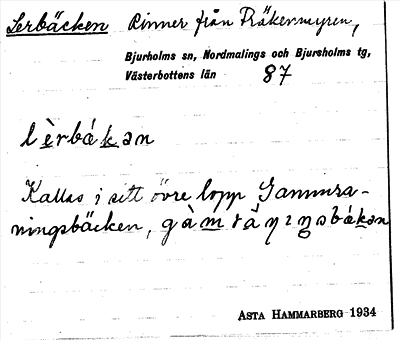 Lerbäcken Rinner från Fräkenmyren,
Bjurholms sn, Nordmalings och Bjurholms tg,
Västerbottens län 87
lèrbákan
Kallas i sitt övre lopp Gammra-
ningsbäcken,
ASTA HAMMARBERG 1934